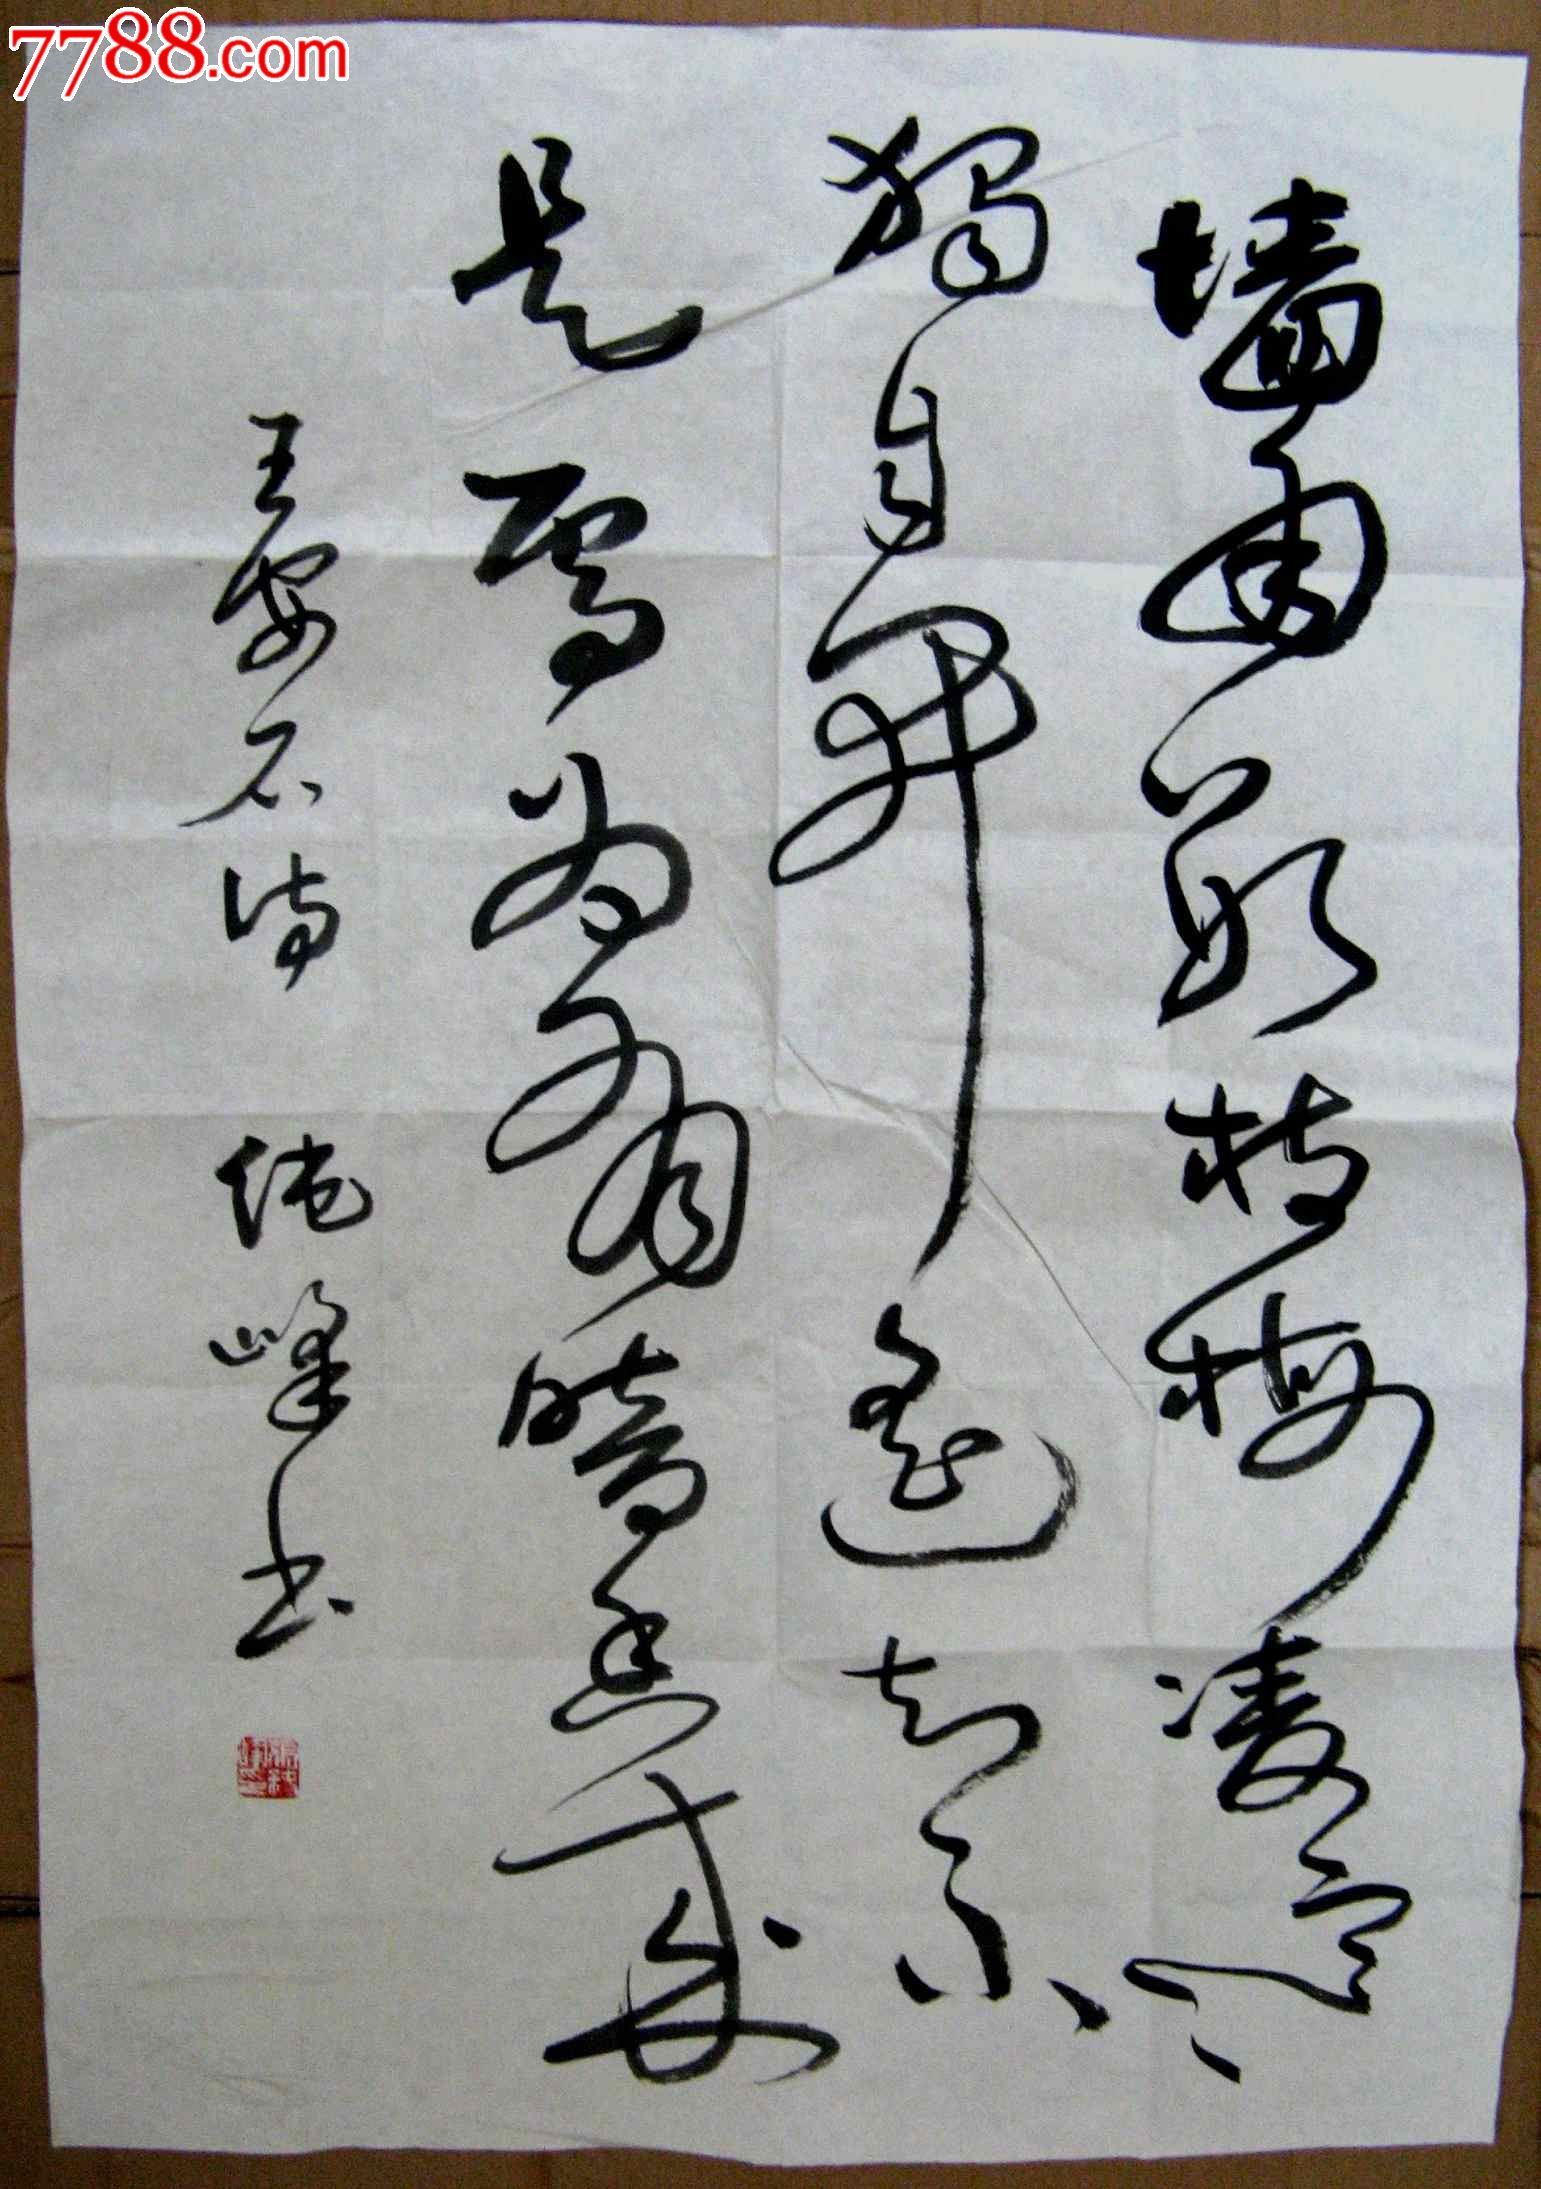 7788.com
墙角数枝梅凌寒
獨自開遥知不
是雪为有暗香来
王安石诗 峰书